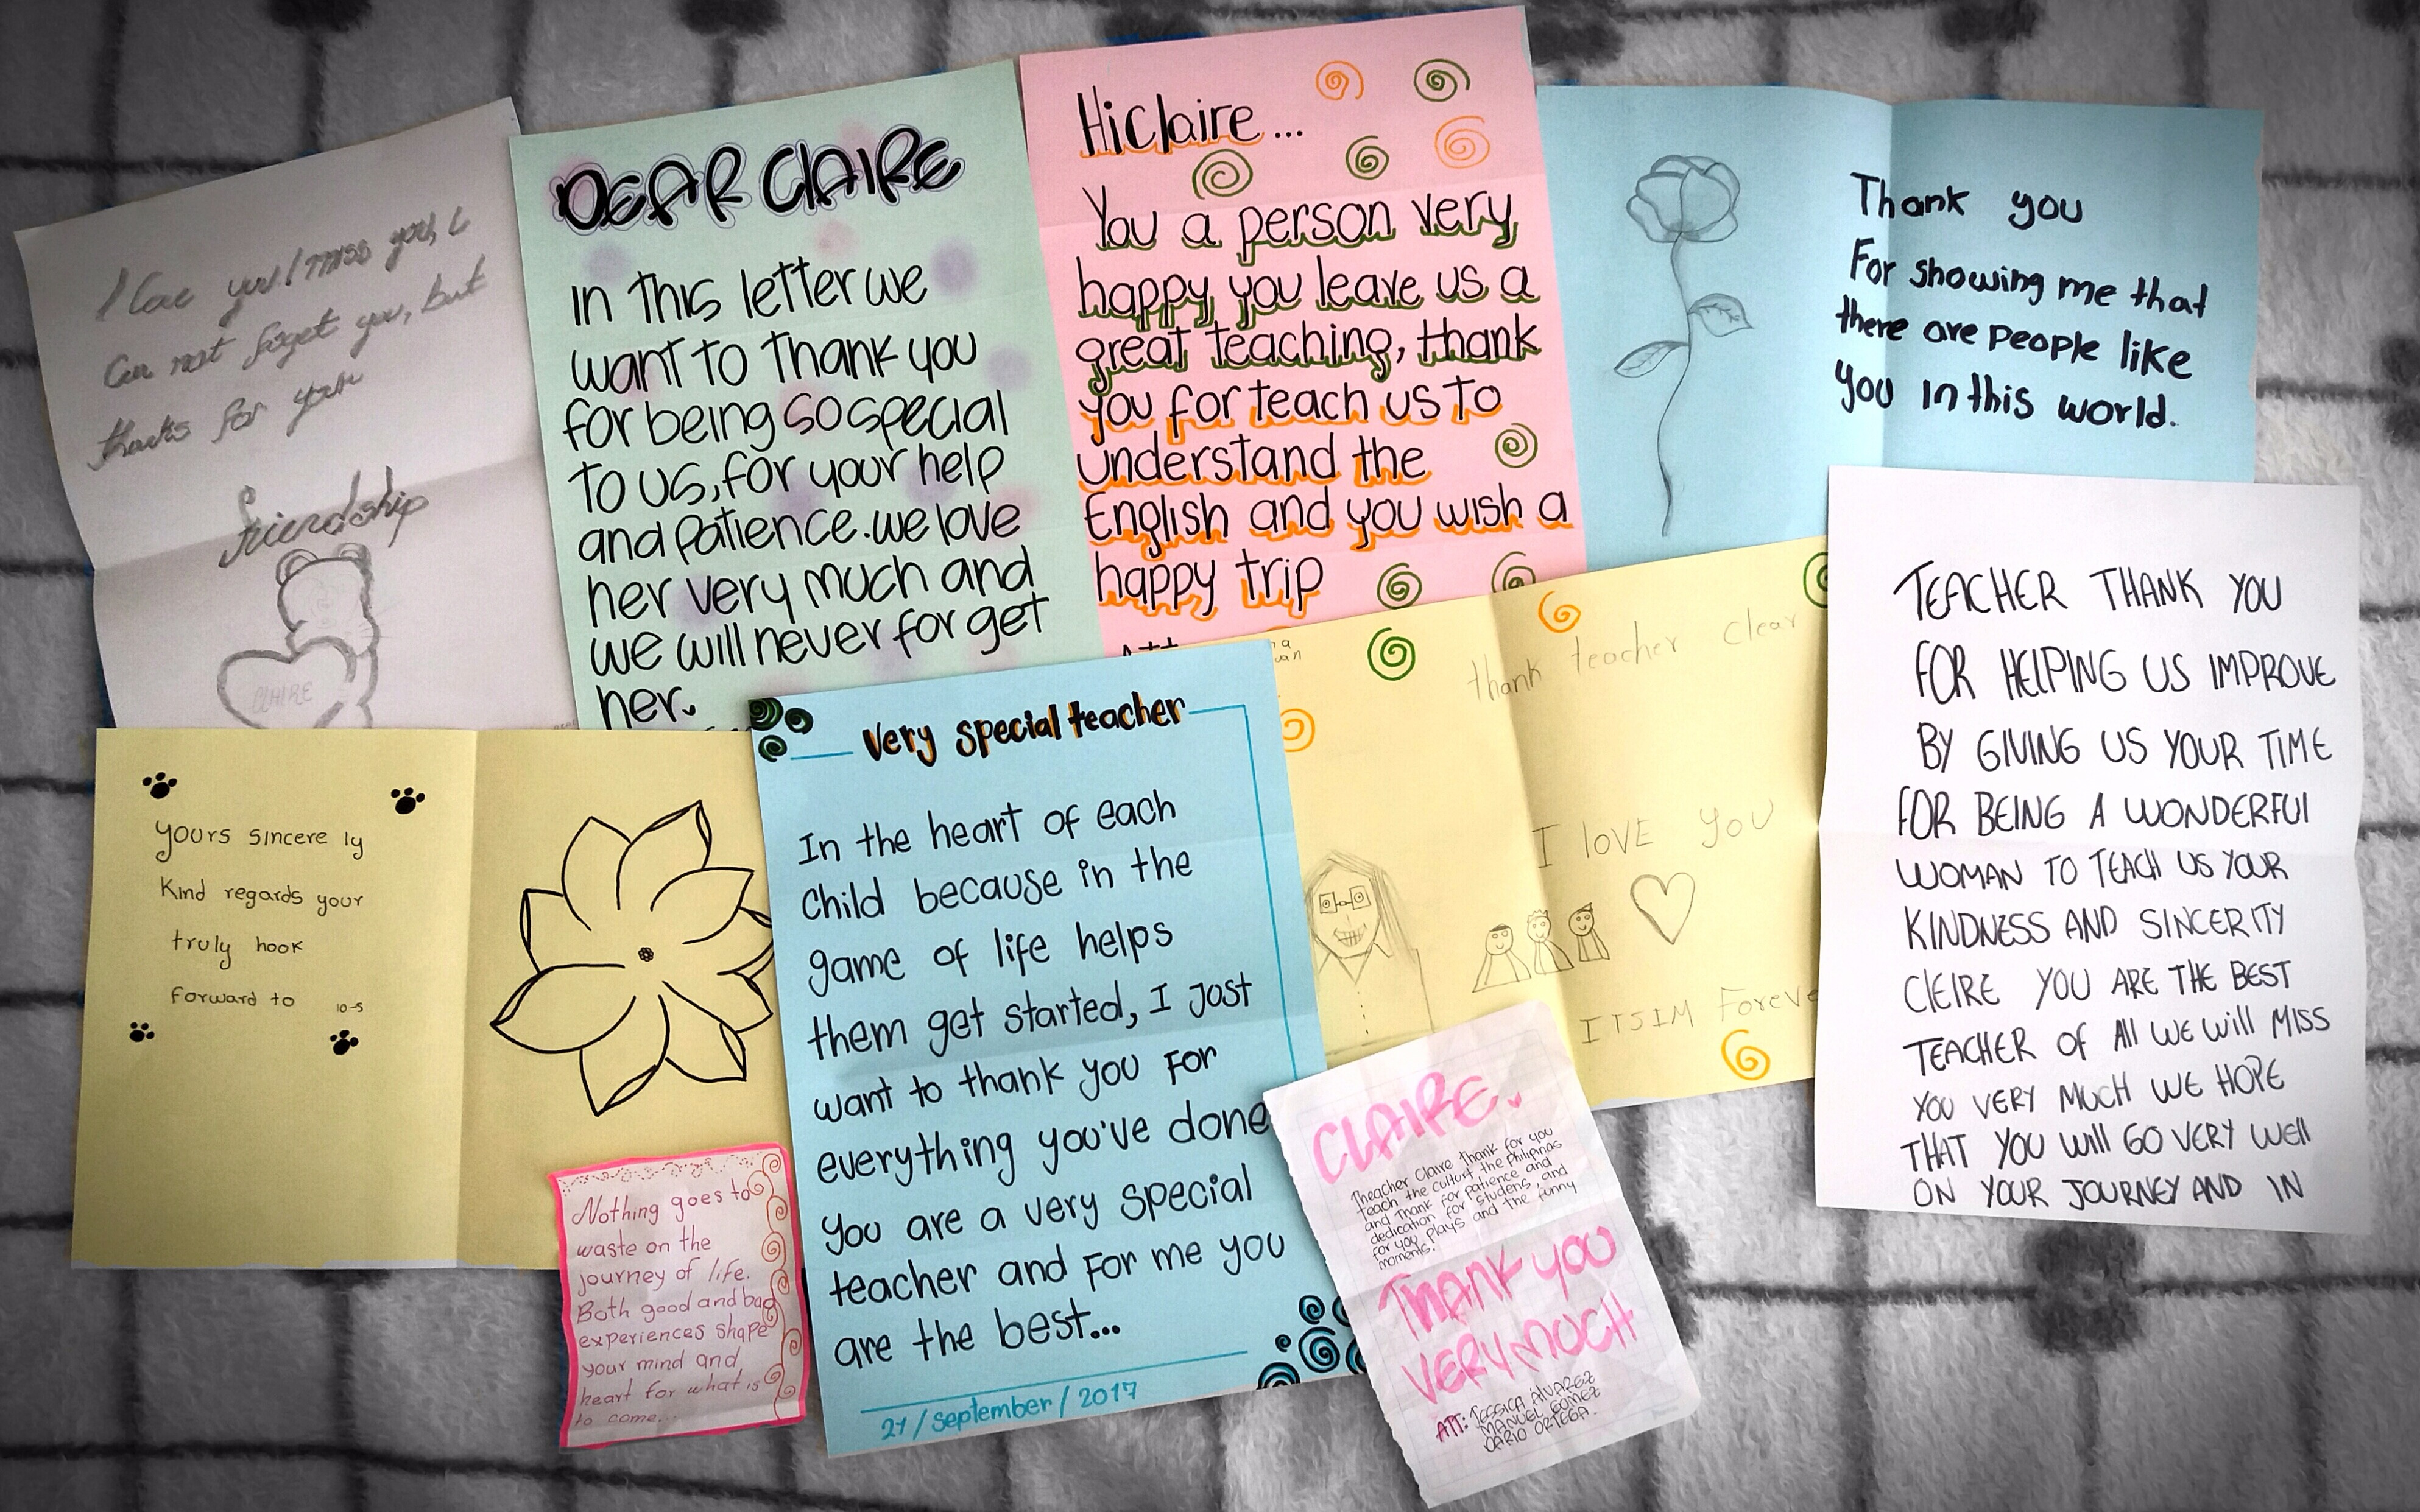 I love you, I miss you, I
can not foget you, but
thanks for your
friendship
CLAIRE
DEAR CLAIRE
In this letter we
want to thank you
for being so special
to us, for your help
and patience. we love
her very much and
we will never forget
her.
Hi Claire...
You a person very
happy you leave us a
great teaching, thank
you for teach us to
understand the
English and you wish a
happy trip
Att
Thank you
For showing me that
there are people like
you in this world.
yours sincere ly
Kind regards your
truly hook
forward to 10-5
Nothing goes to
waste on the
journey of life.
Both good and bad
experiences shape
your mind and
heart for what is
to come...
Very special teacher
In the heart of each
Child because in the
game of life helps
them get started, I Jost
want to thank you For
everything you've done
you are a very special
teacher and For me you
are the best...
21/september/2017
thank teacher clear
I love you
ITSIM Foreve
CLAIRE.
Theacher Claire Thank for you
teach the culturt the Philipinas
and Thank for patience and
dedication for studens, and
for you plays and the funny
moments.
THANK YOU
VERY MUCH
ATT: JESSICA ALVAREZ
MANUEL GOMEZ
DARIO ORTEGA.
TEACHER THANK YOU
FOR HELPING US IMPROVE
BY GIVING US YOUR TIME
FOR BEING A WONDERFUL
WOMAN TO TEACH US YOUR
KINDNESS AND SINCERITY
CLEIRE YOU ARE THE BEST
TEACHER OF All WE Will MISS
YOU VERY MUCH WE HOPE
THAT YOU Will GO VERY Well
ON YOUR JOURNEY AND IN